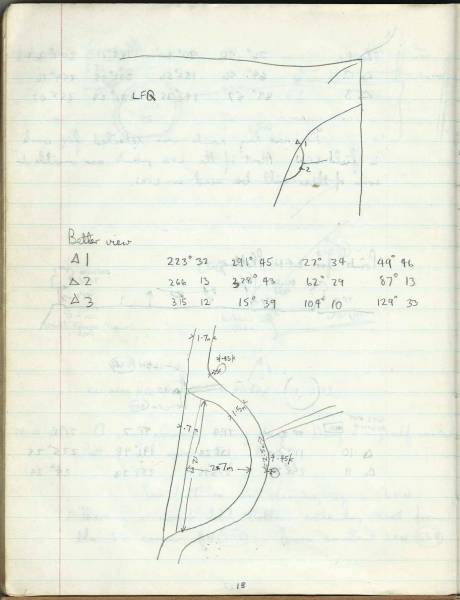 LFQ
Δ 1
2
Better view
Δ 1 223° 32 291° 45 27° 34 49° 46
Δ 2 266 13 328° 43 62° 29 87° 13
Δ 3 315 12 15° 39 104° 10 129° 33
1.7m
4.45k
1.5m
.7m
2.7m
4.45k
18